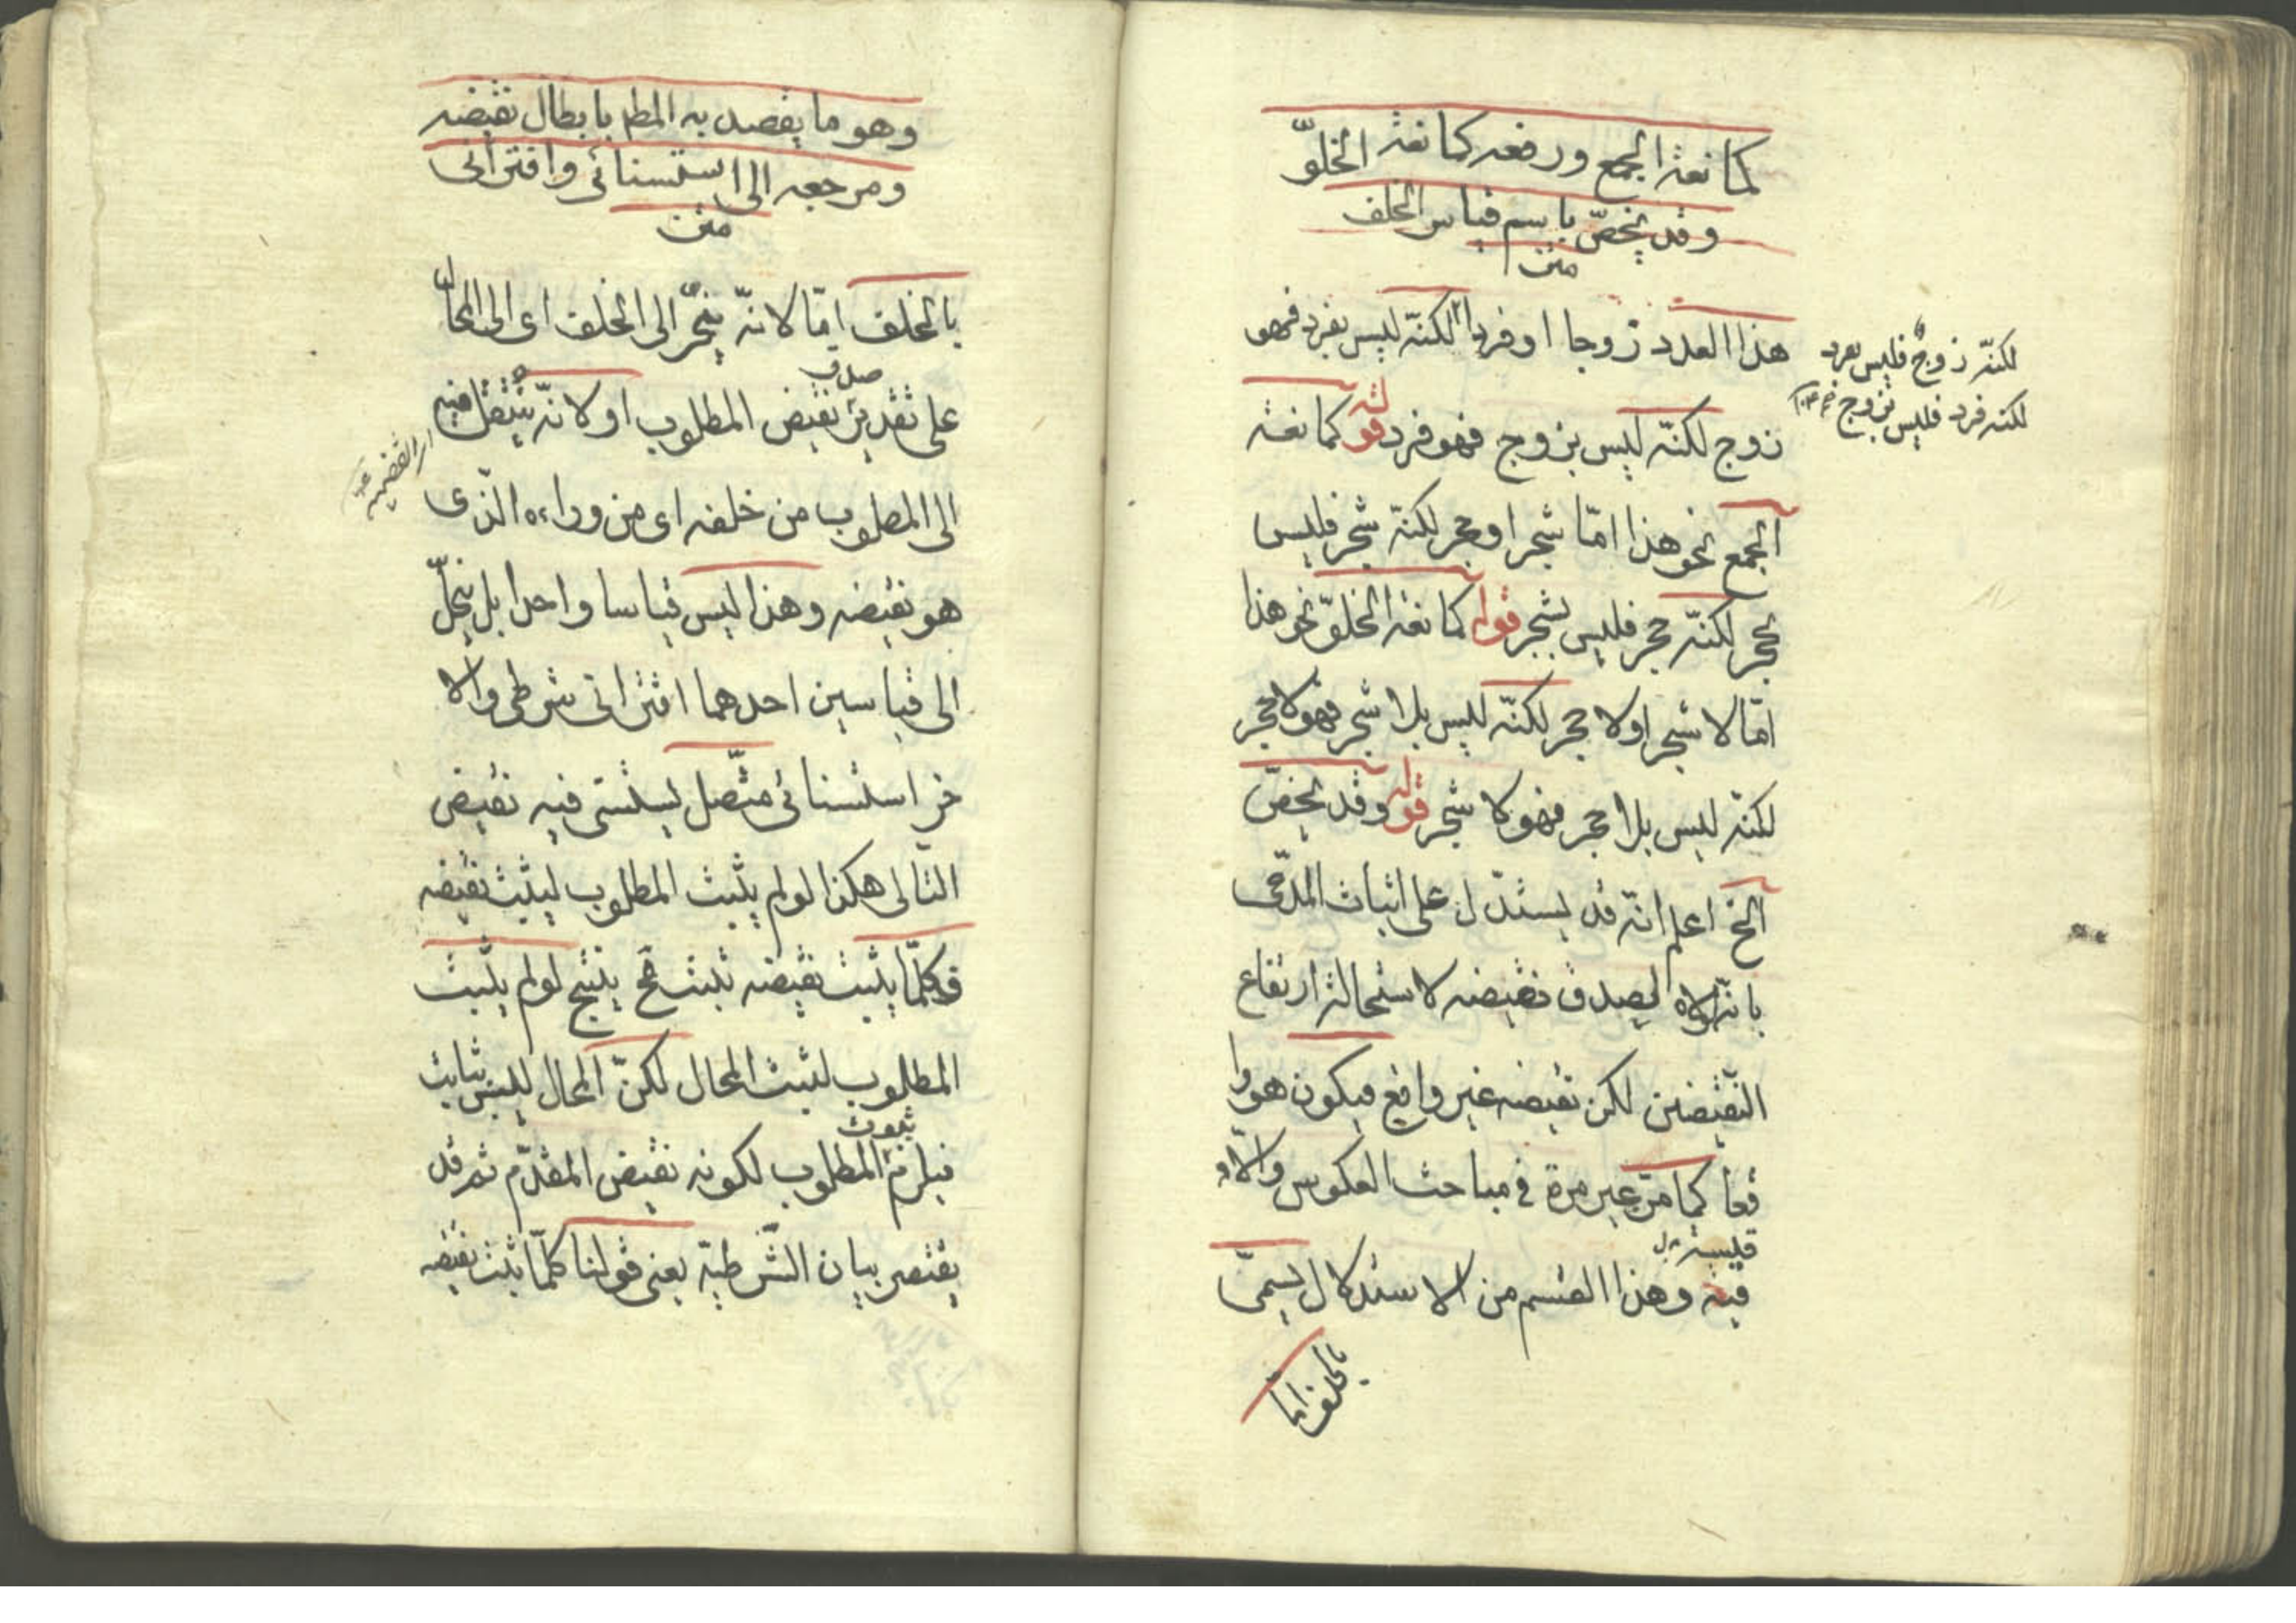 كمانعة الجمع ورفعه كمانعة الخلوّ
وقد يختصّ باسم قياس الخلف
متن
هذا العدد زوجا او فردا لكنّه ليس بفرد فهو
زوج لكنّه ليس بزوج فهو فرد قوله كمانعة
الجمع نحو هذا امّا شجر او حجر لكنّه شجر فليس
بحجر لكنّه حجر فليس بشجر قوله كمانعة الخلوّ نحو هذا
امّا لا شجر او لا حجر لكنّه ليس بلا شجر فهو لا حجر
لكنّه ليس بلا حجر فهو لا شجر قوله وقد يختصّ
الخ اعلم انّه قد يستدلّ على اثبات المدّعى
بانّه لولاه لصدق نقيضه لاستحالة ارتفاع
النّقيضين لكن نقيضه غير واقع فيكون هو وا
قعا كما مرّ غير مرة فى مباحث العكوس والا
قيسة
فيه وهذا القسم من الاستدلال يسمّى
بالخلف امّا
لكنّه زوج فليس بفرد
لكنه فرد فليس بزوج
وهو ما يقصد به المط بابطال نقيضه
ومرجعه الى استثنائى واقترانى
متن
بالخلف امّا لانّه ينجرّ الى الخلف اى الى المحال
صدق
على تقدير نقيض المطلوب او لانّه ينتقل فيه
الى المطلوب من خلفه اى من وراءه الّذى
هو نقيضه وهذا ليس قياسا واحدا بل ينحلّ
الى قياسين احدهما اقترانى شرطى والا
خر استثنائى متّصل يستثنى فيه نقيض
التالى هكذا لو لم يثبت المطلوب ليثبت نقيضه
وكلّما يثبت نقيضه ثبت مح ينتج لو لم يثبت
المطلوب لثبت المحال لكنّ المحال ليس بثابت
ثبوت
فيلزم المطلوب لكونه نقيض المقدّم ثم قد
يفتقر بيان الشّرطيّة يعنى قولنا كلّما يثبت نقيضه